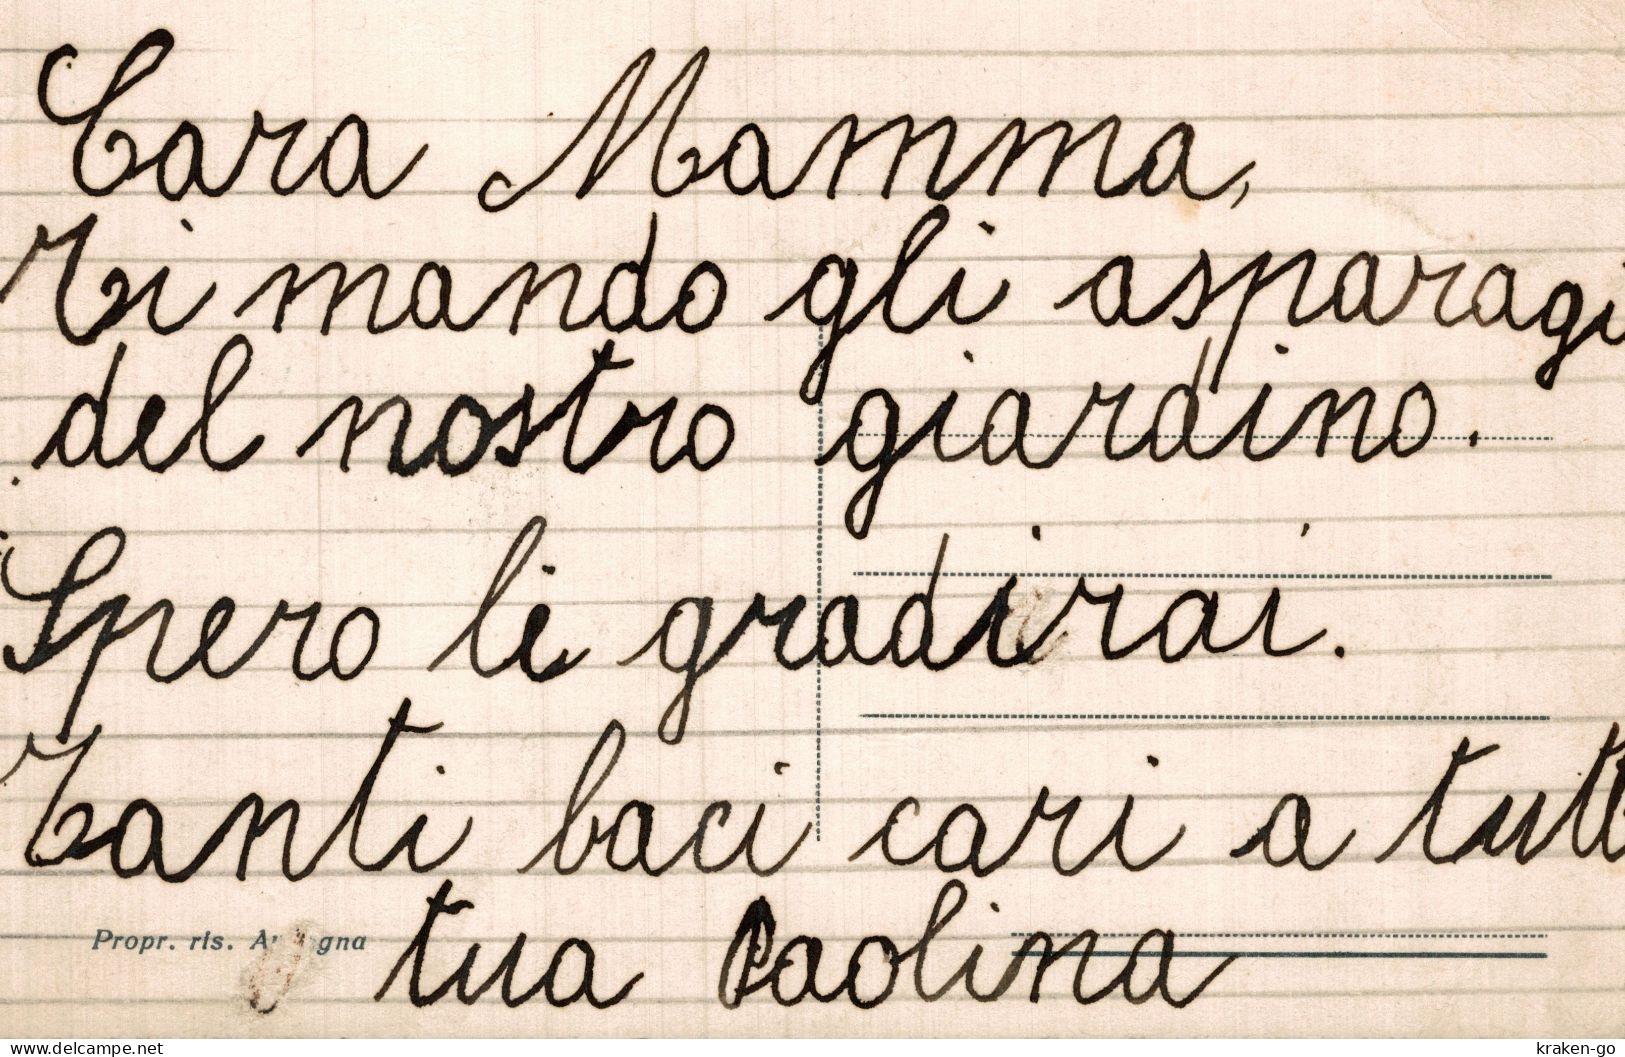 Cara Mamma,
Ti mando gli asparagi
del nostro giardino.
Spero li gradirai.
Tanti baci cari a tutt
tua Paolina
Propr. ris.
www.delcampe.net
kraken-go